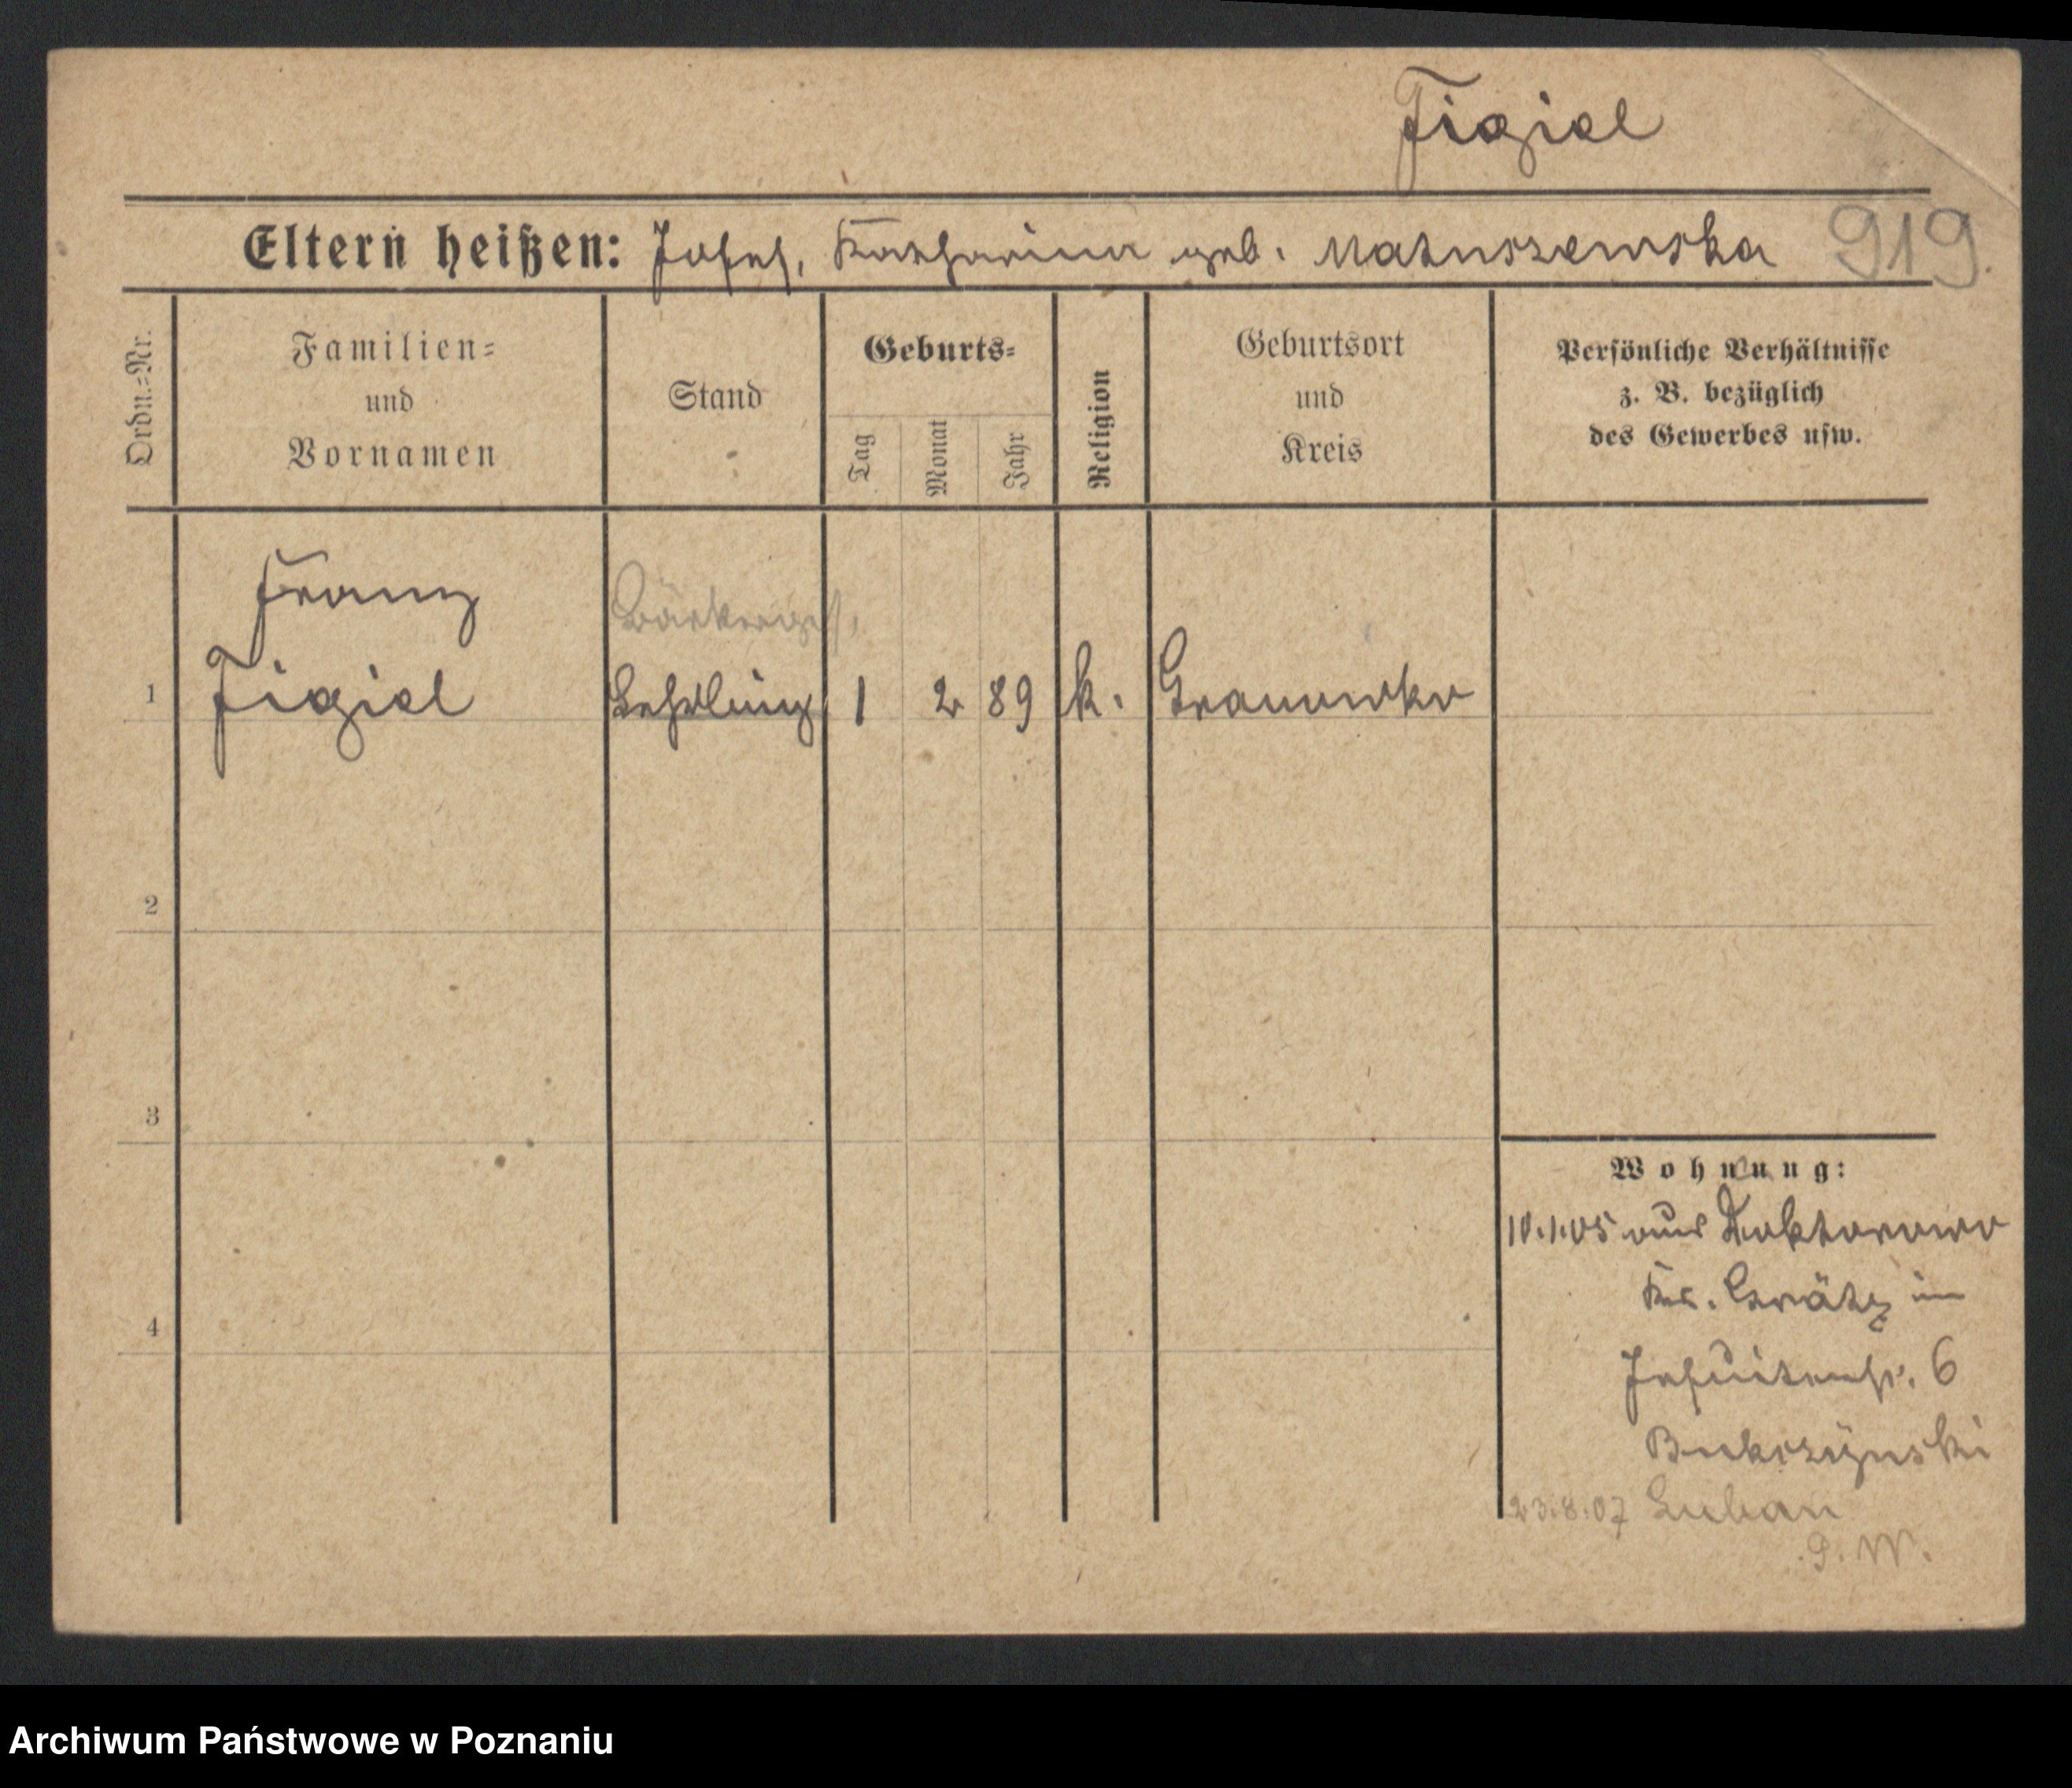 Figiel
Eltern heißen: Josef, Katharina geb. Matuszewska 919.
Ordn.=Nr.
Familien=
und
Vornamen
Stand
Geburts=
Tag
Monat
Jahr
Religion
Geburtsort
und
Kreis
Persönliche Verhältnisse
z. B. bezüglich
des Gewerbes usw.
Franz
Bäckerges.
1 Figiel Lehrling 1 2 89 k. Granowko
2
3
Wohnung:
10.1.05 aus Doktorowo
Kr. Grätz in
4
Jesuitenstr. 6
Bukczyński
23.8.07 Luban
P. W.
Archiwum Państwowe w Poznaniu